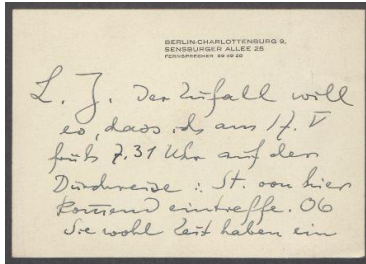 BERLIN-CHARLOTTENBURG 9,
SENSBURGER ALLEE 25
FERNSPRECHER 99 49 20
L. J. Der Zufall will
es, dass ich am 17. V
früh 7.31 Uhr auf der
Durchreise : St. von hier
komend eintreffe. Ob
Sie wohl Zeit haben ein